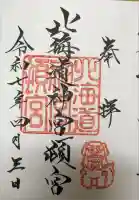 奉拝
北海道神宮頓宮
令和七年四月三日
北海道
頓宮